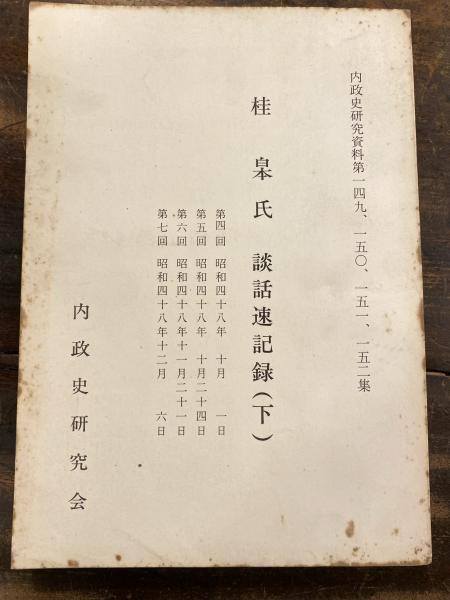 内政史研究資料第一四九、一五〇、一五一、一五二集
桂皋氏談話速記録(下)
第四回 昭和四十八年 十月 一日
第五回 昭和四十八年 十月二十四日
第六回 昭和四十八年十一月二十一日
第七回 昭和四十八年十二月 六日
内政史研究会